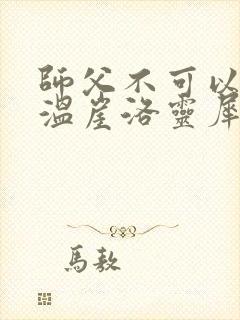 師父不可以
溫崖洛靈犀
馬敖